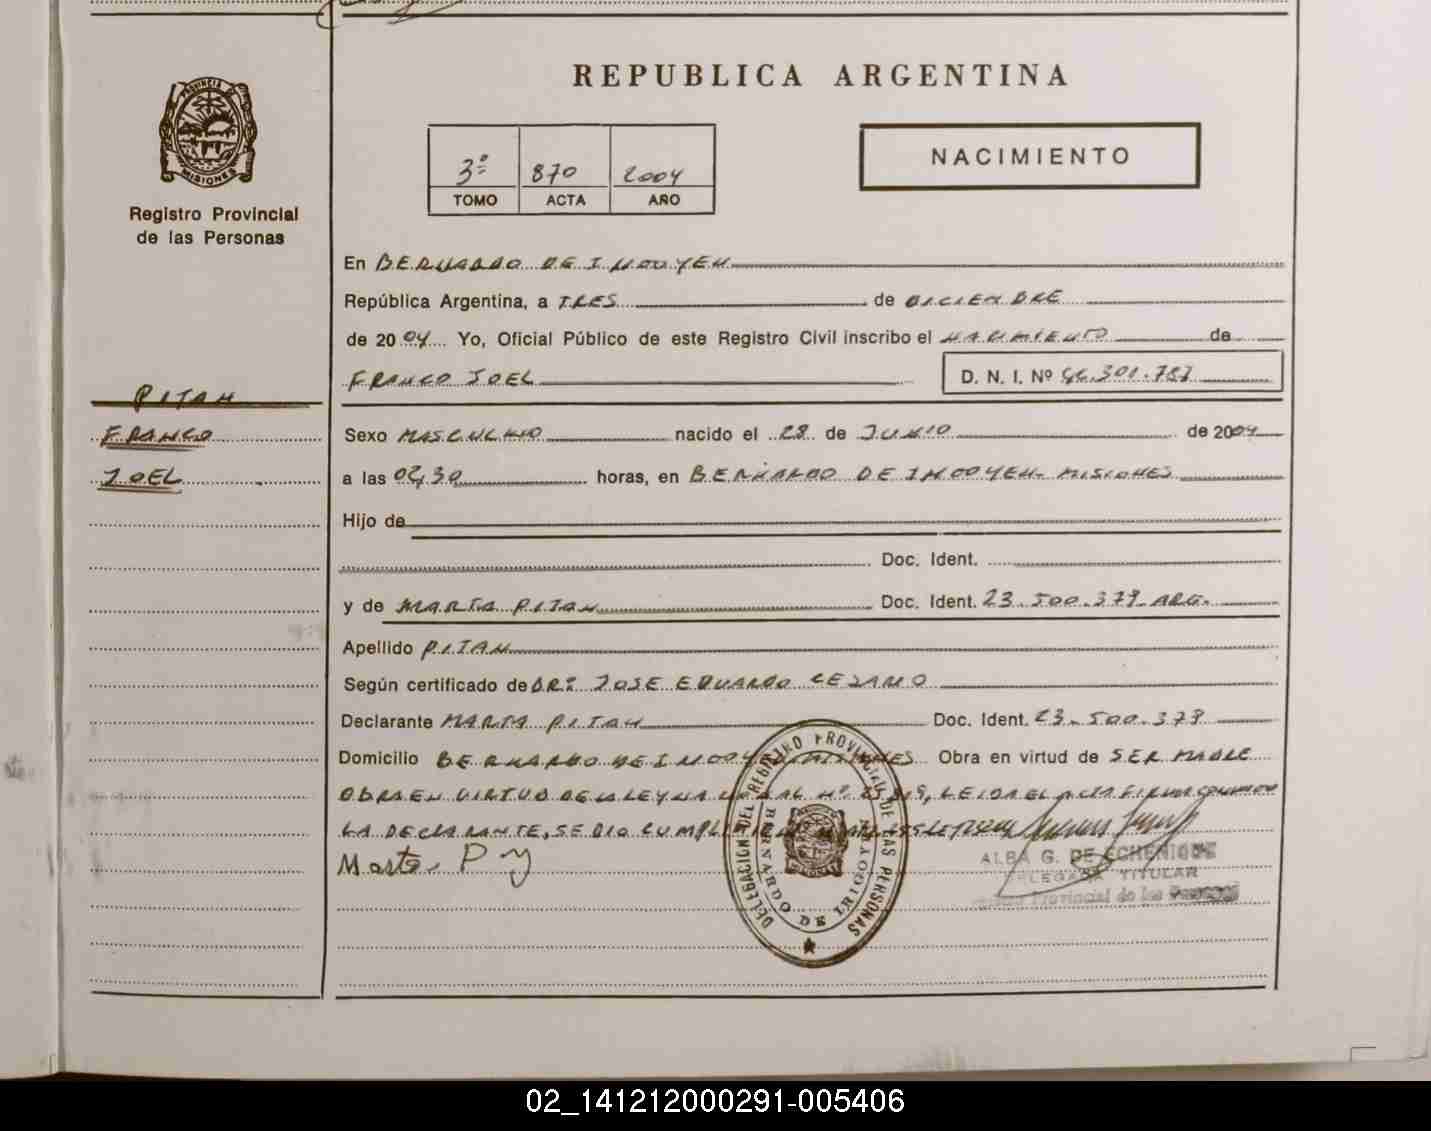 REPUBLICA ARGENTINA
PROVINCIA DE
MISIONES
Registro Provincial
de las Personas
3º 870 2004
TOMO ACTA AÑO
NACIMIENTO
En BERNARDO DE IRIGOYEN
República Argentina, a TRES de DICIEMBRE
de 2004 Yo, Oficial Público de este Registro Civil inscribo el NACIMIENTO de
FRANCO JOEL D. N. I. Nº 46.301.787
PITAN
FRANCO
JOEL
Sexo MASCULINO nacido el 28 de JUNIO de 2004
a las 02,30 horas, en BERNARDO DE IRIGOYEN- MISIONES
Hijo de
Doc. Ident.
y de MARTA PITAN Doc. Ident. 23.500.379 ARG.
Apellido PITAN
Según certificado de DR: JOSE EDUARDO CESARIO
Declarante MARTA PITAN Doc. Ident. 23.500.379
Domicilio BERNARDO DE IRIGOYEN MISIONES Obra en virtud de SER MADRE
OBRA EN VIRTUD DE LA LEY NACIONAL Nº LEIDA EL ACTA FIRMA CONMIGO
LA DECLARANTE, SE DIO
Marta P
DELEGACION DEL REGISTRO PROVINCIAL DE LAS PERSONAS
BERNARDO DE IRIGOYEN
ALBA G. DE ECHENIQUE
DELEGADA TITULAR
Provincial de las Personas
02_141212000291-005406